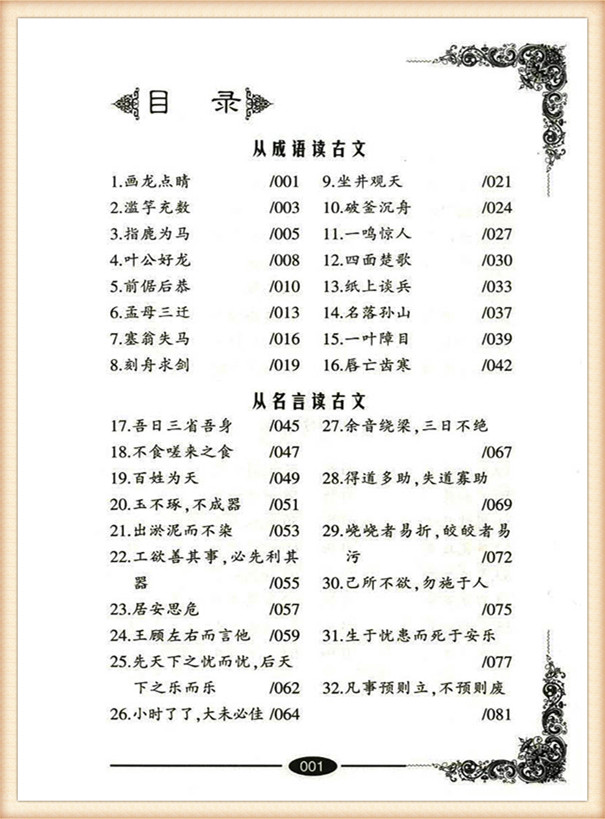 目 录
从成语读古文
1.画龙点睛 /001
2.滥竽充数 /003
3.指鹿为马 /005
4.叶公好龙 /008
5.前倨后恭 /010
6.孟母三迁 /013
7.塞翁失马 /016
8.刻舟求剑 /019
9.坐井观天 /021
10.破釜沉舟 /024
11.一鸣惊人 /027
12.四面楚歌 /030
13.纸上谈兵 /033
14.名落孙山 /037
15.一叶障目 /039
16.唇亡齿寒 /042
从名言读古文
17.吾日三省吾身 /045
18.不食嗟来之食 /047
19.百姓为天 /049
20.玉不琢,不成器 /051
21.出淤泥而不染 /053
22.工欲善其事,必先利其
器 /055
23.居安思危 /057
24.王顾左右而言他 /059
25.先天下之忧而忧,后天
下之乐而乐 /062
26.小时了了,大未必佳 /064
27.余音绕梁,三日不绝
/067
28.得道多助,失道寡助
/069
29.峣峣者易折,皎皎者易
污 /072
30.己所不欲,勿施于人
/075
31.生于忧患而死于安乐
/077
32.凡事预则立,不预则废
/081
001